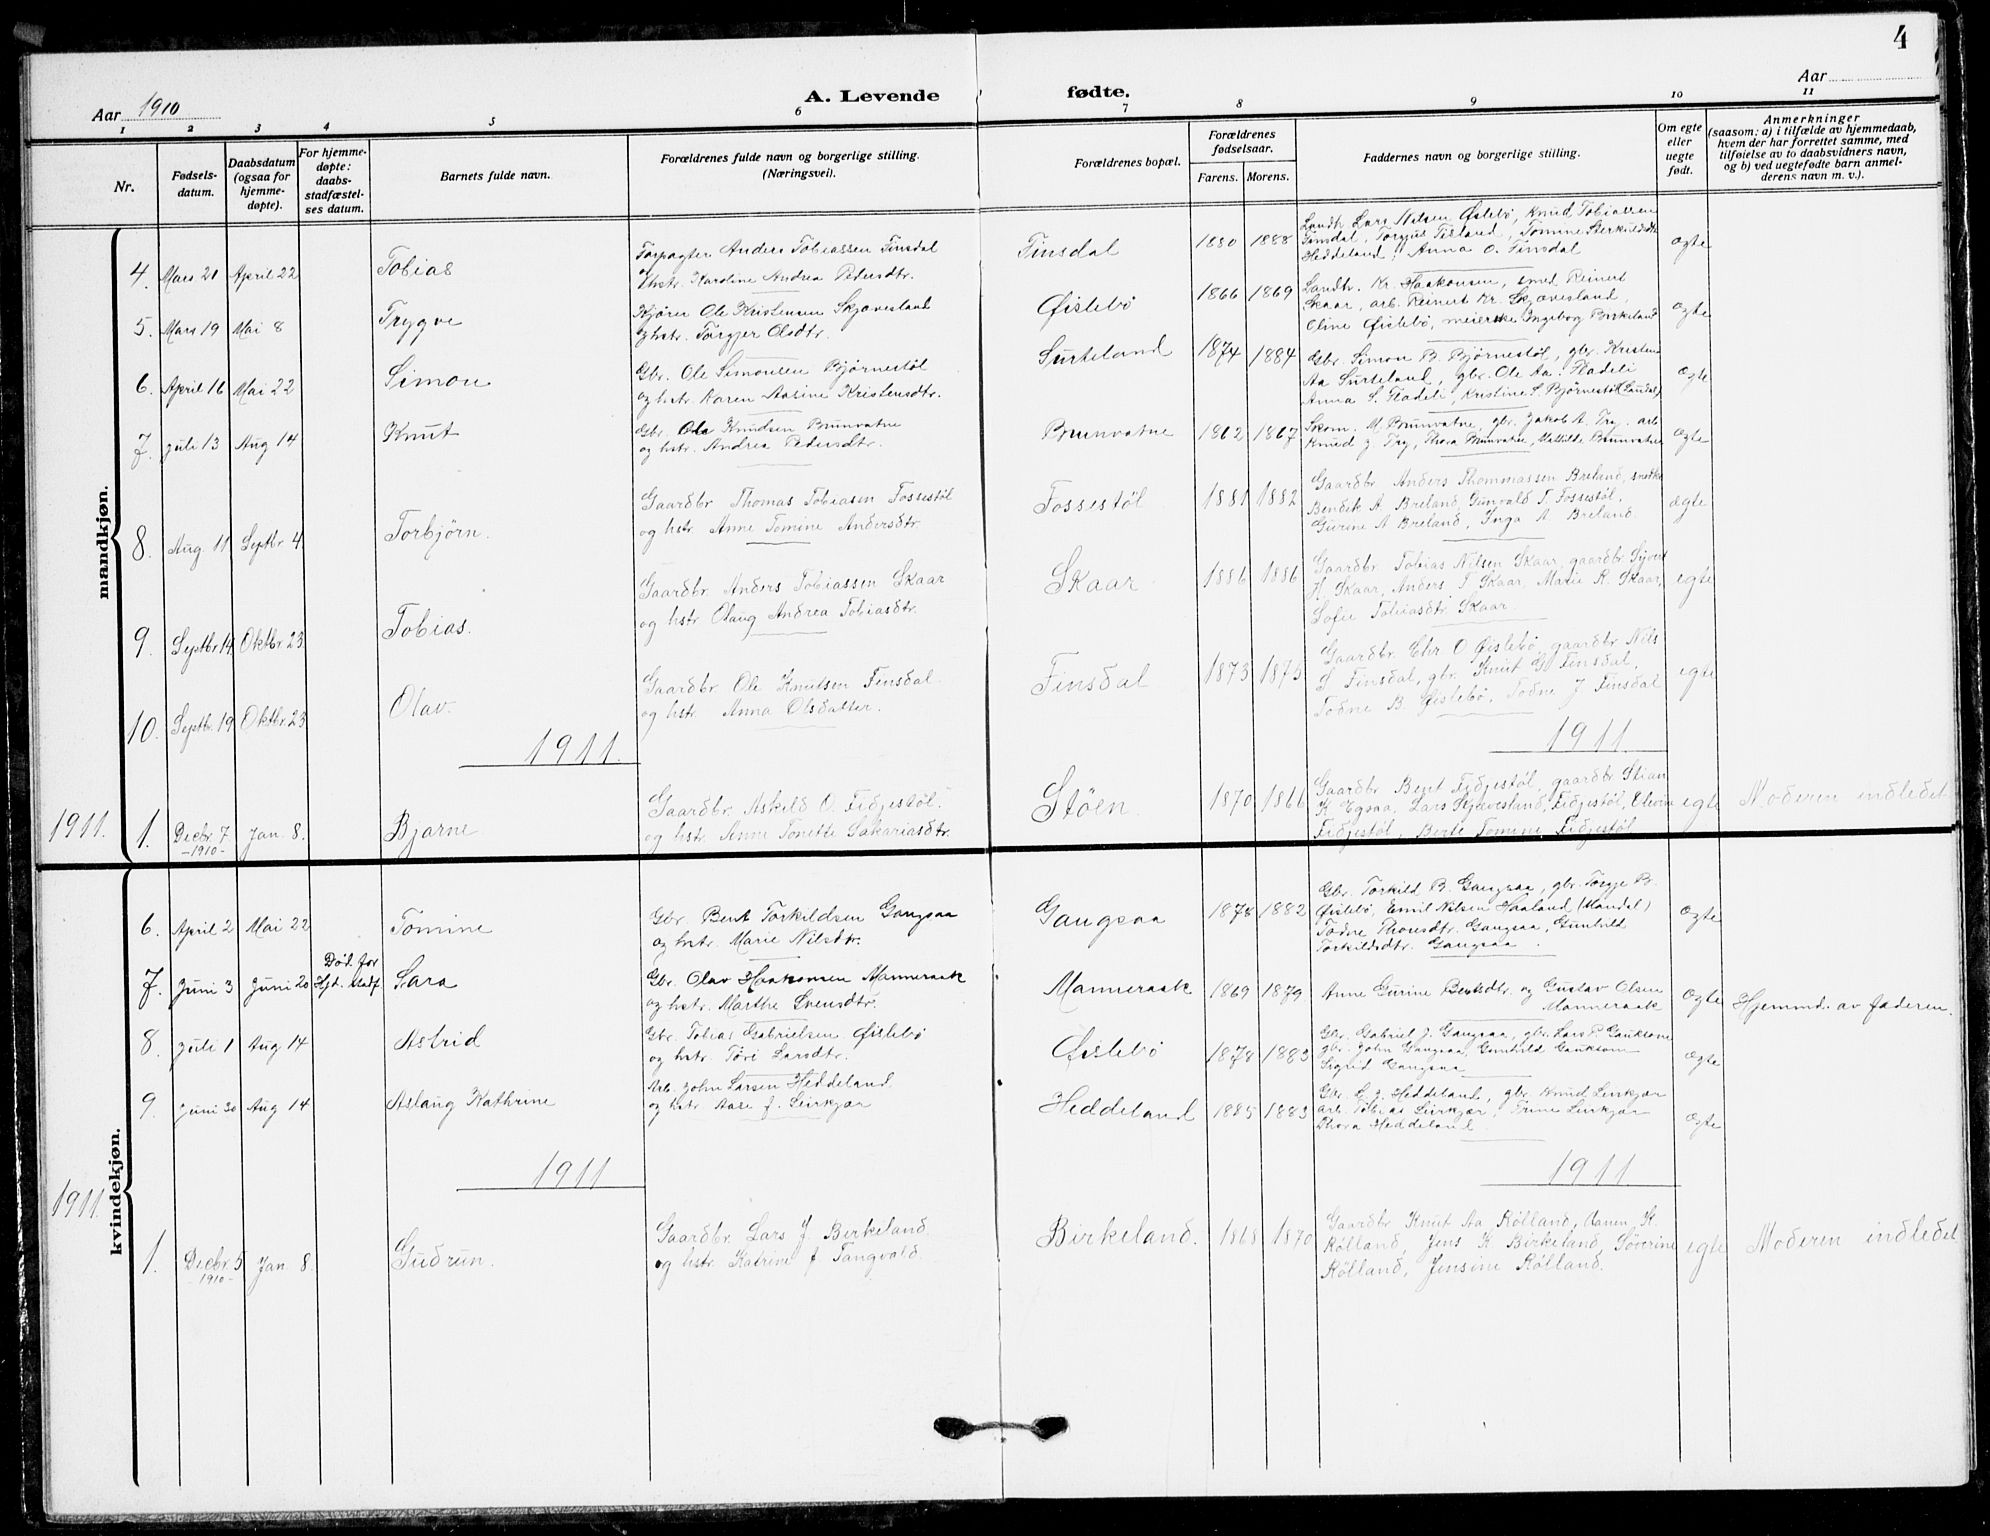 4
Aar 1910
A. Levende fødte.
Aar
1 2 3 4 5 6 7 8 9 10 11
Nr.
Fødsels-
datum.
Daabsdatum
(ogsaa for
hjemme-
døpte).
For hjemme-
døpte:
daabs-
stadfæstel-
ses datum.
Barnets fulde navn.
Forældrenes fulde navn og borgerlige stilling.
(Næringsvei).
Forældrenes bopæl.
Forældrenes
fødselsaar.
Farens. Morens.
Faddernes navn og borgerlige stilling.
Om egte
eller
uegte
født.
Anmerkninger
(saasom: a) i tilfælde av hjemmedaab,
hvem der har forrettet samme, med
tilføielse av to daabsvidners navn,
og b) ved uegtefødte barn anmel-
derens navn m. v.).
mandkjøn.
4. Mars 21 April 22 Tobias
Forpagter Anders Tobiassen Finsdal
og hstr. Karoline Andrea Pedersdtr.
Finsdal 1880 1888
Landh. Lars Nilsen Øislebö, Knud Tobiassen
Finsdal, Torjus Tisland, Tomine Sterkildsdtr
Heddeland, Anna O. Finsdal
Egte
5. Mars 19 Mai 8 Trygve
Kjörer Ole Kristensen Skjævesland
og hstr. Torgjer Olsdtr.
Øislebö 1866 1869
Landh. Kr. Haakonsen, smed Reinert
Skaar, arb. Reinert Kr. Skjævesland,
Oline Øislebö, meierske Ingeborg Birkeland
Egte
6. April 16 Mai 22 Simon
Gbr. Ole Simonsen Bjørnestøl
og hstr. Karen Aasine Kristensdtr.
Surteland 1874 1884
Gbr. Simon B. Bjørnestøl, gbr. Kristen
Aa Surteland, gbr. Ole Aa. Fladeli
Anna S. Fladeli, Kristine S. Bjørnestøl (Laudal)
Egte
7. Juli 13 Aug 14 Knut
Gbr. Ola Knudsen Brunvatne
og hstr. Andrea Pedersdtr.
Brunvatne 1862 1867
Skom. M. Brunvatne, gbr. Jakob A. Try, arb
Knud J. Try, Thora Brunvatne, Mathilde Brunvatne
Egte
8. Aug. 11 Septbr. 4 Torbjörn.
Gaardbr Thomas Tobiasen Fossestöl
og hstr. Anne Tomine Andersdtr.
Fossestöl 1881 1882
Gaardbr. Anders Thommassen Breland, snedker
Bendik A Breland, Gunvald T. Fossestöl,
Gurine A Breland, Inga A. Breland.
ægte
9. Septbr. 14 Oktbr. 23 Tobias.
Gaardbr. Anders Tobiassen Skaar
og hstr Olaug Andrea Tobiasdtr.
Skaar 1886 1886
Gaardbr Tobias Nilsen Skaar, gaardbr. Syvert
H. Skaar, Anders T Skaar, Marie R. Skaar,
Sofie Tobiasdtr. Skaar
egte
10. Septbr. 19 Oktbr. 23 Olav.
Gaardbr. Ole Knutsen Finsdal
og hstr. Anna Olsdatter.
Finsdal 1873 1875
Gaardbr. Chr. O Øislebø, gaardbr Nils
S Finsdal, gbr. Knut G. Finsdal,
Todne B. Øislebö, Todne J Finsdal
egte
1911. 1911.
1911. 1. Decbr. 7 -1910- Jan. 8. Bjarne
Gaardbr. Askeld O. Fidjestöl.
og hstr. Anne Tonette Sakariasdtr.
Stöen 1870 1866
Gaardbr Bent Fidjestöl, gaardbr. Stian
K Egsaa, Lars Skjævesland, Fidjestöl, Elvine
Fidjestöl, Berte Tomine Fidjestöl
egte Moderen indledet
kvindekjøn.
6. April 2 Mai 22 Tomine
Gbr. Bent Torkildsen Gangsaa
og hstr. Marie Nilsdtr.
Gangsaa 1878 1882
Gbr. Torkild B. Gangsaa, gbr. Torgje B.
Øislebö, Emil Nilsen Haaland (Mandal)
Todne Thorsdtr. Gangsaa, Gunhild
Torkildsdtr. Gangsaa
Egte
7. Juni 3 Juni 20 Død før Hjd. stadf Sara
Gbr. Olav Haakonsen Manneraak
og hstr. Marthe Svensdtr.
Manneraak 1869 1879
Anne Gurine Bentsdtr. og Gustav Olsen
Manneraak
Egte Hjemmd. av faderen.
8. Juli 1 Aug 14 Astrid
Gbr. Tobias Gabrielsen Øislebö
og hstr. Töri Larsdtr.
Øislebö 1878 1883
Gbr. Gabriel J. Gangsaa, gbr. Lars P.
gbr. John Gangsaa, Gunhild
Sigrid Gangsaa
Egte
9. Juni 30 Aug 14 Aslaug Kathrine
Arb. John Larsen Heddeland
og hstr. Aase f. Leirkjær
Heddeland 1885 1883
Gbr. L. J. Heddeland, gbr. Knud Leirkjær
arb. Tobias Leirkjær, Trine Leirkjær
Thora Heddeland.
Egte
1911 1911
1911. 1. Decbr. 5 -1910- Jan 8. Gudrun.
Gaardbr. Lars J. Birkeland.
og hstr. Katrine f Tangvald.
Birkeland. 1868 1870
Gaardbr Knut Aa. Rölland, Aanen K.
Rölland, Jens K Birkeland, Sörine
Rölland, Jensine Rölland.
egte Moderen indledet